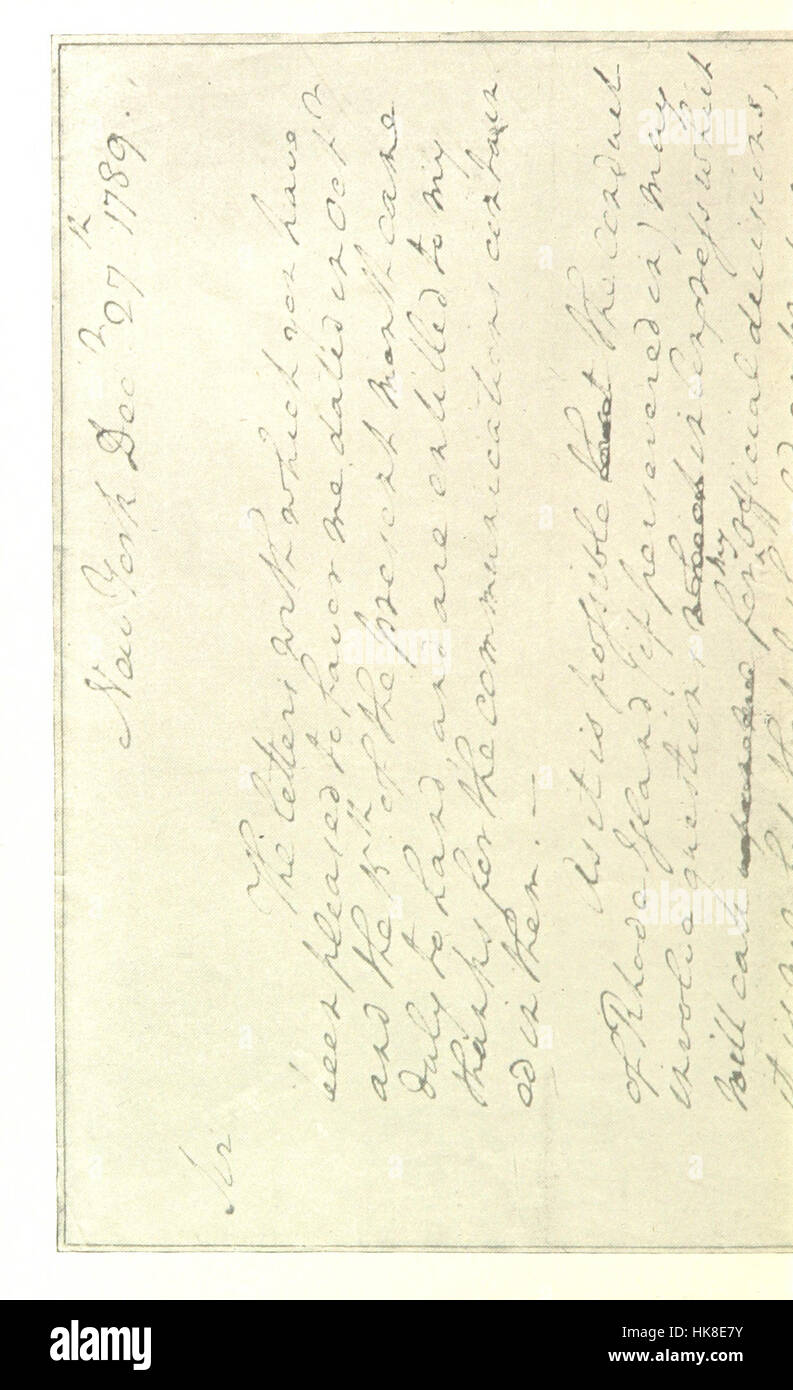 New York Decr 27th 1789.
Sir
The letters with which you have
been pleased to favor me dated in Octr
and the 5th of the present month came
duly to hand, and are entitled to my
thanks for the communications contain
ed in them. —
As it is possible that the conduct
of Rhode Island (if persevered in) may
involve questions in Congress which
will call for my official decisions,
it is
alamy stock photo
HK8E7Y
www.alamy.com